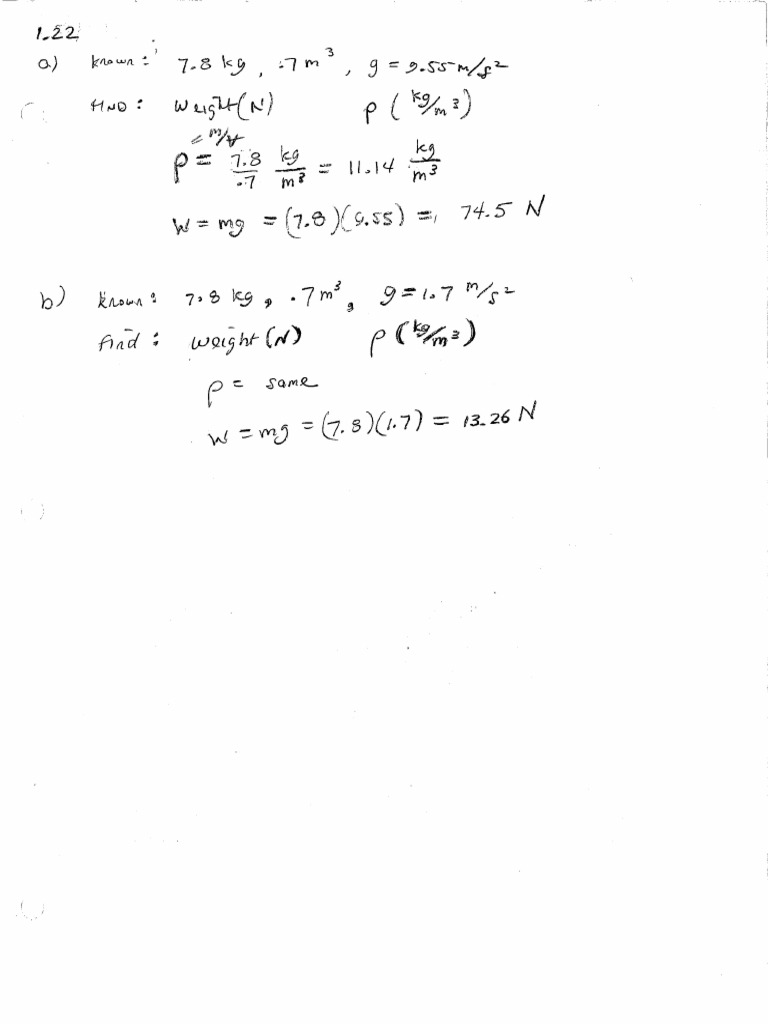 1.22
a) known: 7.8 kg, .7 m³, g = 9.55 m/s²
FIND: Weight(N) ρ (kg/m³)
= m/V
ρ = 7.8/.7 kg/m³ = 11.14 kg/m³
W = mg = (7.8)(9.55) = 74.5 N
b) known: 7.8 kg, .7 m³, g = 1.7 m/s²
find: weight (N) ρ (kg/m³)
ρ = same
W = mg = (7.8)(1.7) = 13.26 N